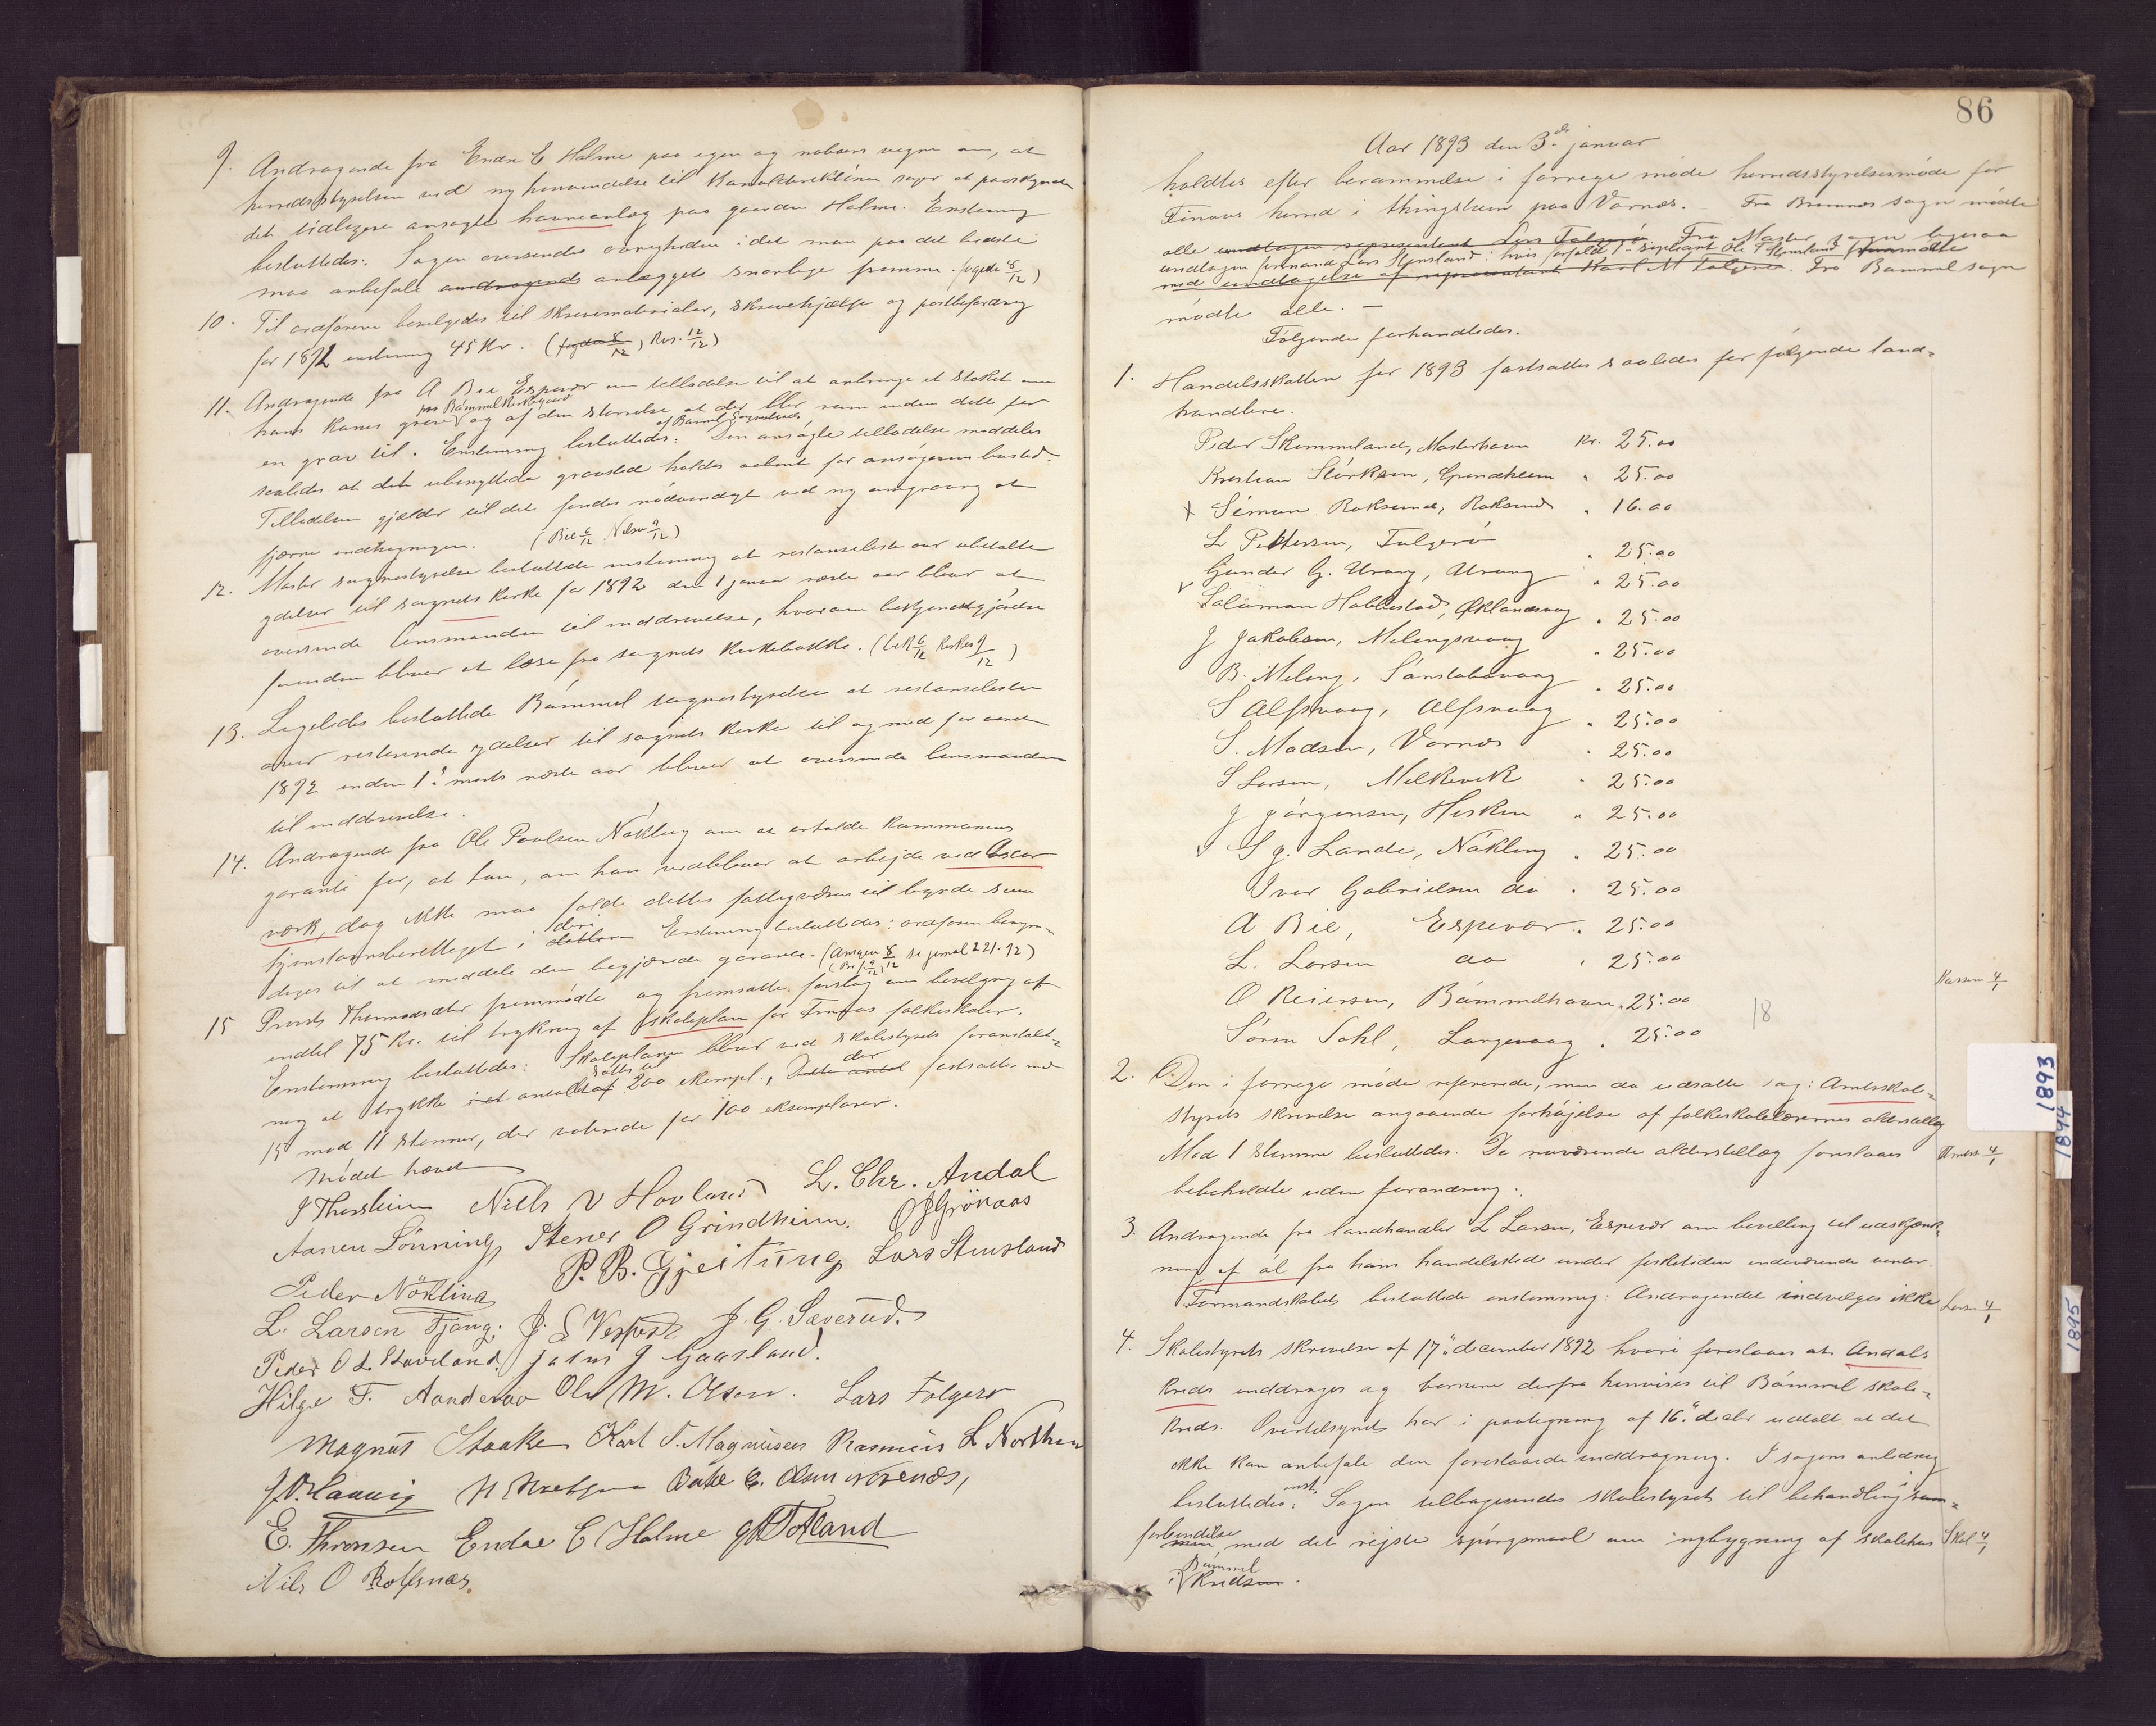 9. Andragende fra Endre E Holme paa egen og naboers vegne om, at
herredsstyrelsen ved ny henvendelse til Kanaldirektören søger at paaskynde
det tidligere ansøgte havneanlæg paa gaarden Holme. Enstemmig
besluttedes: Sagen oversendes øvrigheden idet man paa det bedste
maa anbefale andragende anlæggets snarlige fremme. (fogden 8/12)
10. Til ordføreren bevilgedes til skrivematerialer, skrivehjælp og postbefordring
for 1892 enstemmig 45 Kr. (fogden 8/12, Rev. 12/12)
11. Andragende fra A Bie Espevær om tilladelse til at anbringe et stakit om
paa Bømmel Kirkegaard
hans Kones grav og af den størrelse at der blir rum inden dette for
af Bømmel Sognestyrelse
en grav til. Enstemmig besluttedes: Den ansøgte tilladelse meddeles
saaledes at det ubenyttede gravsted holdes aabent for ansøgerens bortsted.
Tilladelsen gjælder til det findes nødvendigt ved ny omgravning at
fjerne indhegningen. (Bie 6/12 Nilsen 9/12)
12. Moster sognestyrelse besluttede enstemmig at restanseliste over ubetalte
ydelser til sognets kirke for 1892 den 1 januar næste aar bliver at
oversende lensmanden til inddrivelse, hvorom bekjendtgjørelse
forinden bliver at læse fra sognets kirkebakke. (Lek 6/12 Kirkev 9/12)
13. Ligeledes besluttede Bömmel sognestyrelse at restanselisten
over resterende ydelser til sognets kirke til og med for aaret
1892 inden 1ste marts næste aar bliver at oversende lensmanden
til inddrivelse.
14. Andragende fra Ole Paulsen Nökling om at erholde Kommunens
garanti for, at han, om han vedbliver at arbejde ved Oscar
værk, dog ikke maa falde dettes fattigvæsen til byrde som
deri
hjemstavnsberettiget i dettem Enstemmig besluttedes: ordføreren bemyn-
diges til at meddele den begjærede garanti. (Ansøgeren 8/12 se jornal 221.92)
15 Provst Thormodsæter fremmødte og fremsatte forslag om bevilgning af
indtil 75 Kr. til trykning af skoleplan for Finaas folkeskoler.
Enstemmig besluttedes: Skoleplanen bliver ved skolestyrets foranstalt-
ning at trykke i et antal af 200 eksempl., Dette antal der fastsattes med
15 mod 11 stemmer, der voterede for 100 eksemplarer.
Mödet hævet
J Thorsheim Niels V Hovland L. Chr. Andal
Aanen Lönning, Stener O Grindheim. O J Grönaas
Peder Nökling P. B. Gjeitung Lars Stensland
L. Larsen Fjang. J. S Vespestad J. G. Sæverud.
Peder O L Staveland, Johns J Gaasland.
Hilge F. Aandervåg Ole M. Olsen. Lars Folgerø
Magnus Staake Karl S. Magnusen Rasmus L Northun
J. O. Haavig
E. Thronsen Endre E Holme Totland
Nils O Rolfsnes.
86
Aar 1893 den 3de januar
holdtes efter berammelse i forrige møde herredsstyrelsesmøde for
Finaas herred i thingstuen paa Vornes. Fra Bremnes sogn mødte
alle undtagen representant Lars Folgerø Fra Moster sogn ligesaa
undtagen formand Lars Stensland: hvis forfald 1ste suppleant Ole T Stensland fremmødte
med undtagelse af representant Karl M Folgerø. Fra Bømmel sogn
mødte alle. —
Følgende forhandledes.
1. Handelsskatten for 1893 fastsattes saaledes for følgende land-
handlere.
Peder Skimmeland, Mosterhavn Kr. 25.00
Kristian Störksen, Grindheim " 25.00
x Simon Roksund, Roksund " 16.00
L Pettersen, Folgerö " 25.00
Gunder G. Urang, Urang " 25.00
v Salamon Habbestad, Øklandsvaag " 25.00
J Jakobsen, Melingsvaag " 25.00
B. Meling, Sönstabövaag " 25.00
S Alfsvaag, Alfsvaag " 25.00
S. Madsen, Vornes " 25.00
S Larsen, Melkevik " 25.00
J Jörgensen, Hisken " 25.00
v S J. Lande, Nökling " 25.00
Iver Gabrielsen do " 25.00
A Bie, Espevær " 25.00
L. Larsen do " 25.00
O Reiersen, Bömmelhavn " 25.00
Sören Sohl, Langevaag " 25.00
18
Kassen 4/1
2. Den i forrige møde refererede, men da udsatte sag: Amtsskole-
styrets skrivelse angaaende forhöjelse af folkeskolelærernes alderstillæg
Mod 1 stemme besluttedes. De nuværende alderstillæg foreslaaes
bibeholdte uden forandring.
Amtet 4/1
3. Andragende fra landhandler L Larsen, Espevær om bevilling til udskjænk-
ning af öl fra hans handelssted under fisketiden indeværende vinter.
Formandskabet besluttede enstemmig: Andragendet indvilges ikke
Larsen 4/1
4. Skolestyrets skrivelse af 17de december 1892 hvori foreslaaes at Andals
kreds inddrages og börnene derfra henvises til Bömmel skole-
kreds. Overtilsynet har i paategning af 16de decbr udtalt at det
ikke kan anbefale den foreslaaede inddragning. I sagens anledning
enst.
besluttedes: Sagen tilbagesendes skolestyret til behandling i sam-
forbindelse
men, med det rejste spörgsmaal om nybygning af skolehus
Bömmel
i Kredsen.
Skol 4/1
1893
1894
1895